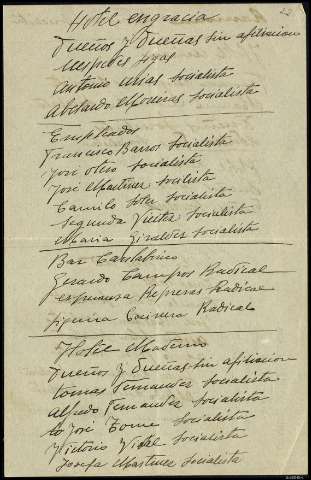 Hotel engracia
22
Dueños y Dueñas sin afiliacion
Antonio socialista
Abelardo Moreiras socialista
Empleados
Francisco Barros socialista
José otero socialista
José Martinez socilista
Camilo Soter socialista
Segunda socialista
Maria Giraldez socialista
Bar Cantabrico
Gerardo Campos Radical
esperanza Represas Radical
Cocinera Radical
Hotel Moderno
Dueños y Dueñas sin afiliacion
tomas Fernandez socialista
Alfredo Fernandez socialista
José Tome socialista
Victorio Vidal socialista
Josefa Martinez socialista